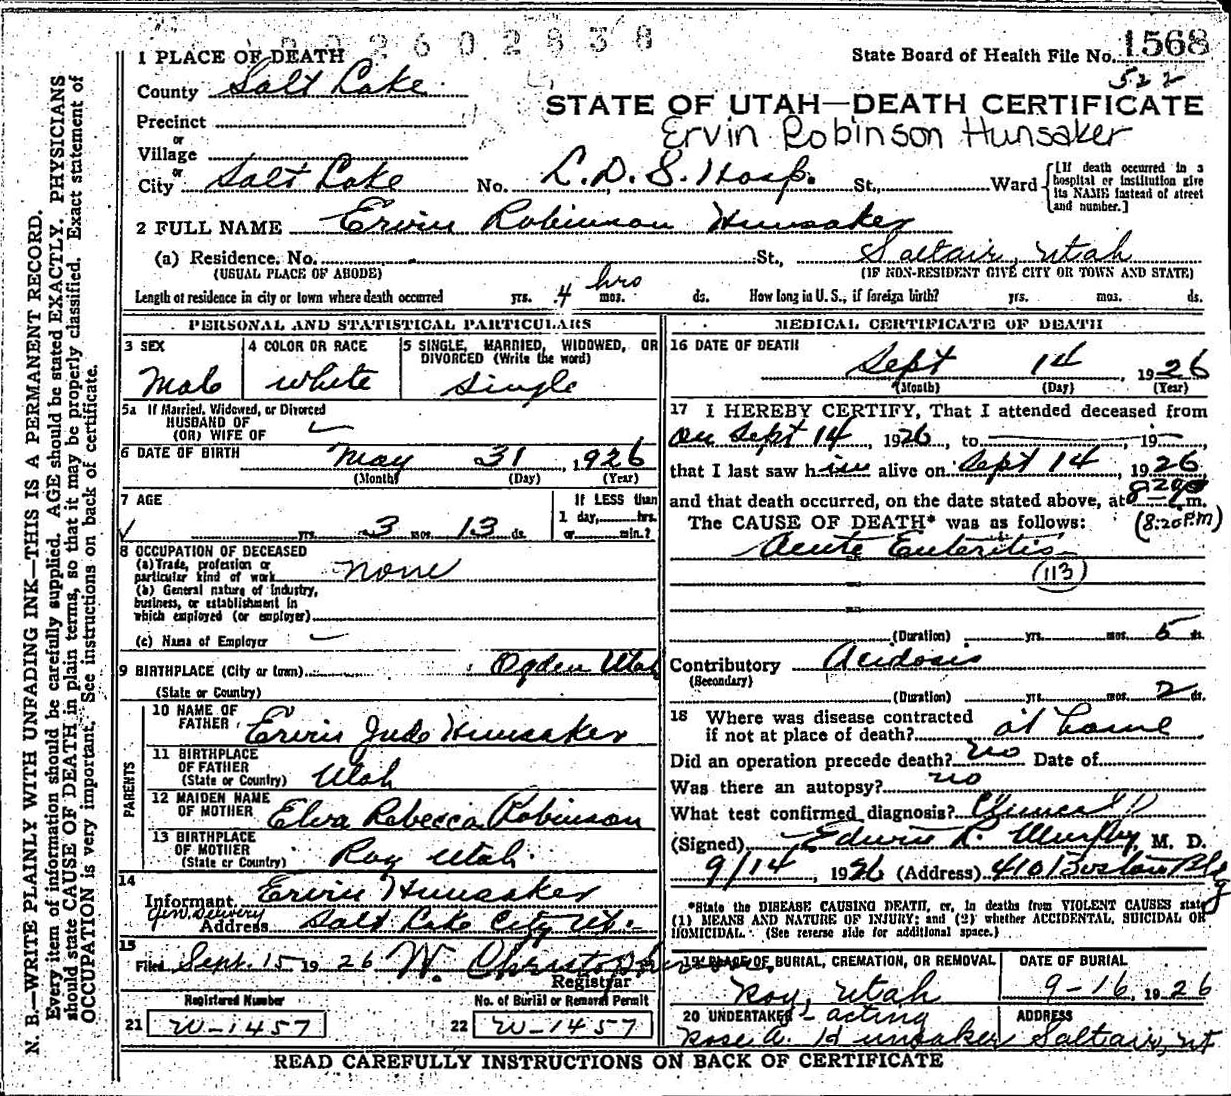 002602838
1 PLACE OF DEATH
State Board of Health File No. 1568
522
County Salt Lake
STATE OF UTAH—DEATH CERTIFICATE
Precinct
Ervin Robinson Hunsaker
or
Village
or
City Salt Lake No. L.D.S. Hosp. St., Ward
[If death occurred in a hospital or institution give its NAME instead of street and number.]
2 FULL NAME Ervin Robinson Hunsaker
(a) Residence. No. St., Saltair, Utah
(USUAL PLACE OF ABODE) (IF NON-RESIDENT GIVE CITY OR TOWN AND STATE)
Length of residence in city or town where death occurred yrs. 4 hrs mos. ds. How long in U. S., if foreign birth? yrs. mos. ds.
PERSONAL AND STATISTICAL PARTICULARS
3 SEX
Male
4 COLOR OR RACE
white
5 SINGLE, MARRIED, WIDOWED, OR DIVORCED (Write the word)
single
5a If Married, Widowed, or Divorced
HUSBAND OF
(OR) WIFE OF
6 DATE OF BIRTH May 31, 1926
(Month) (Day) (Year)
7 AGE
yrs. 3 mos. 13 ds.
If LESS than
1 day, hrs.
or min.?
8 OCCUPATION OF DECEASED
(a) Trade, profession or
particular kind of work none
(b) General nature of Industry,
business, or establishment in
which employed (or employer)
(c) Name of Employer
9 BIRTHPLACE (City or town) Ogden Utah
(State or Country)
PARENTS
10 NAME OF FATHER Ervin Jude Hunsaker
11 BIRTHPLACE OF FATHER
(State or Country) Utah
12 MAIDEN NAME OF MOTHER Elva Rebecca Robinson
13 BIRTHPLACE OF MOTHER
(State or Country) Roy Utah.
14
Informant Ervin Hunsaker
Gen Delivery
Address Salt Lake City Ut.
15
Filed Sept. 15 1926 W. Christopherson.
Registrar
Registered Number
21 W-1457
No. of Burial or Removal Permit
22 W-1457
MEDICAL CERTIFICATE OF DEATH
16 DATE OF DEATH
Sept 14, 1926
(Month) (Day) (Year)
17 I HEREBY CERTIFY, That I attended deceased from
on Sept 14, 1926, to , 19 ,
that I last saw him alive on Sept 14, 1926,
and that death occurred, on the date stated above, at 8:20 P m.
The CAUSE OF DEATH* was as follows: (8:20 P.M)
Acute Enteritis
(113)
(Duration) yrs. mos. 5 ds.
Contributory Acidosis
(Secondary)
(Duration) yrs. mos. 2 ds.
18 Where was disease contracted
if not at place of death? at home
Did an operation precede death? no Date of
Was there an autopsy? no
What test confirmed diagnosis? Clinical
(Signed) Edwin R. Murphy, M. D.
9/14, 1926 (Address) 410 Boston Bldg
*State the DISEASE CAUSING DEATH, or, in deaths from VIOLENT CAUSES state
(1) MEANS AND NATURE OF INJURY; and (2) whether ACCIDENTAL, SUICIDAL OR
HOMICIDAL. (See reverse side for additional space.)
19 PLACE OF BURIAL, CREMATION, OR REMOVAL
Roy, Utah
DATE OF BURIAL
9-16, 1926
20 UNDERTAKER - acting
Rose A. Hunsaker
ADDRESS
Saltair, Ut
READ CAREFULLY INSTRUCTIONS ON BACK OF CERTIFICATE
N. B.—WRITE PLAINLY WITH UNFADING INK—THIS IS A PERMANENT RECORD.
Every item of information should be carefully supplied. AGE should be stated EXACTLY. PHYSICIANS
should state CAUSE OF DEATH in plain terms, so that it may be properly classified. Exact statement of
OCCUPATION is very important. See instructions on back of certificate.